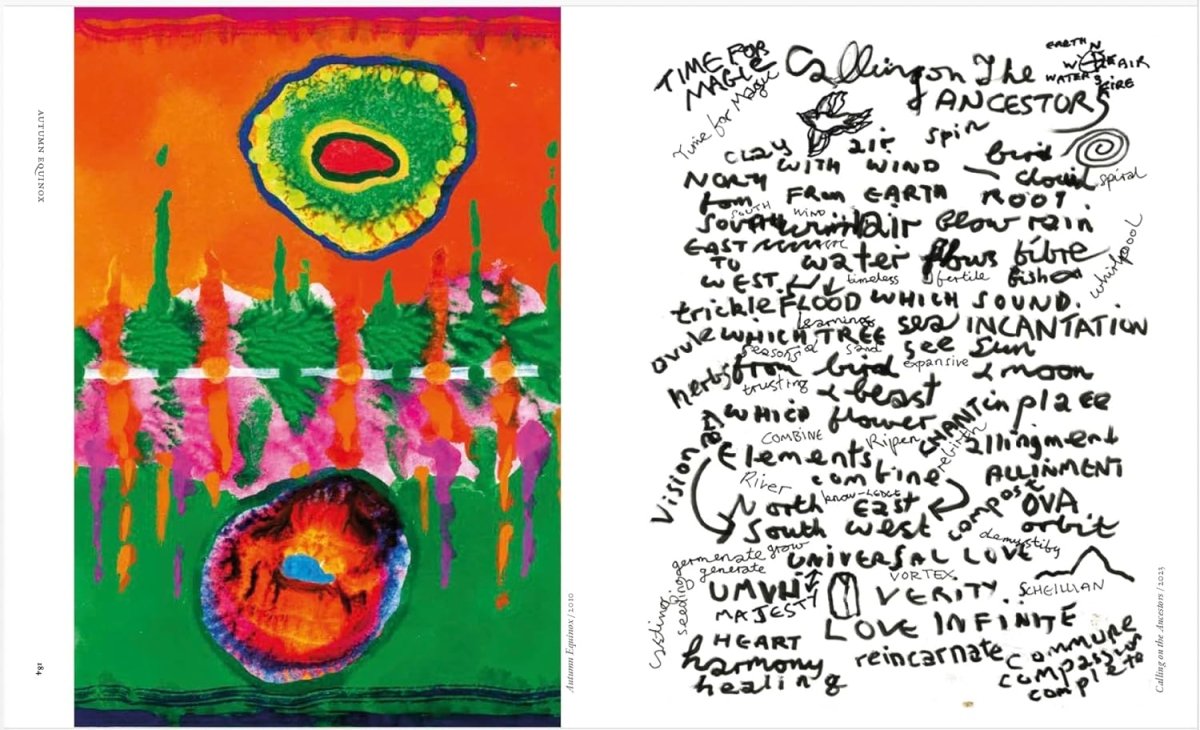 AUTUMN EQUINOX
184
Autumn Equinox / 2010
TIME FOR
MAGIC
Time for Magic
Calling on The
ANCESTORS
EARTH N
W E AIR
WATER S
FIRE
CLAY air spin bird
WITH WIND cloud spiral
NORTH
from FROM EARTH ROOT
SOUTH WIND
SOUTH air BLOW rain
EAST
TO water flows fibre
whirlpool
WEST timeless fertile fish
trickle FLOOD WHICH SOUND.
learnings
ovule WHICH TREE sea INCANTATION
seasons sand see sun
herbs from bird expansive & moon
trusting & beast
WHICH flower CHANT in place
COMBINE Ripen rebirth allingment
Vision Elements
combine ALLINMENT
River know-LEDGE compose OVA
North East
South west orbit
demystify
germenate grow UNIVERSAL LOVE
generate VORTEX
SCHEILLIAN
seeding
MAJESTY VERITY
LOVE INFINITE
HEART
harmony reincarnate COMMUNE
healing compassion
complete
Calling on the Ancestors / 2023